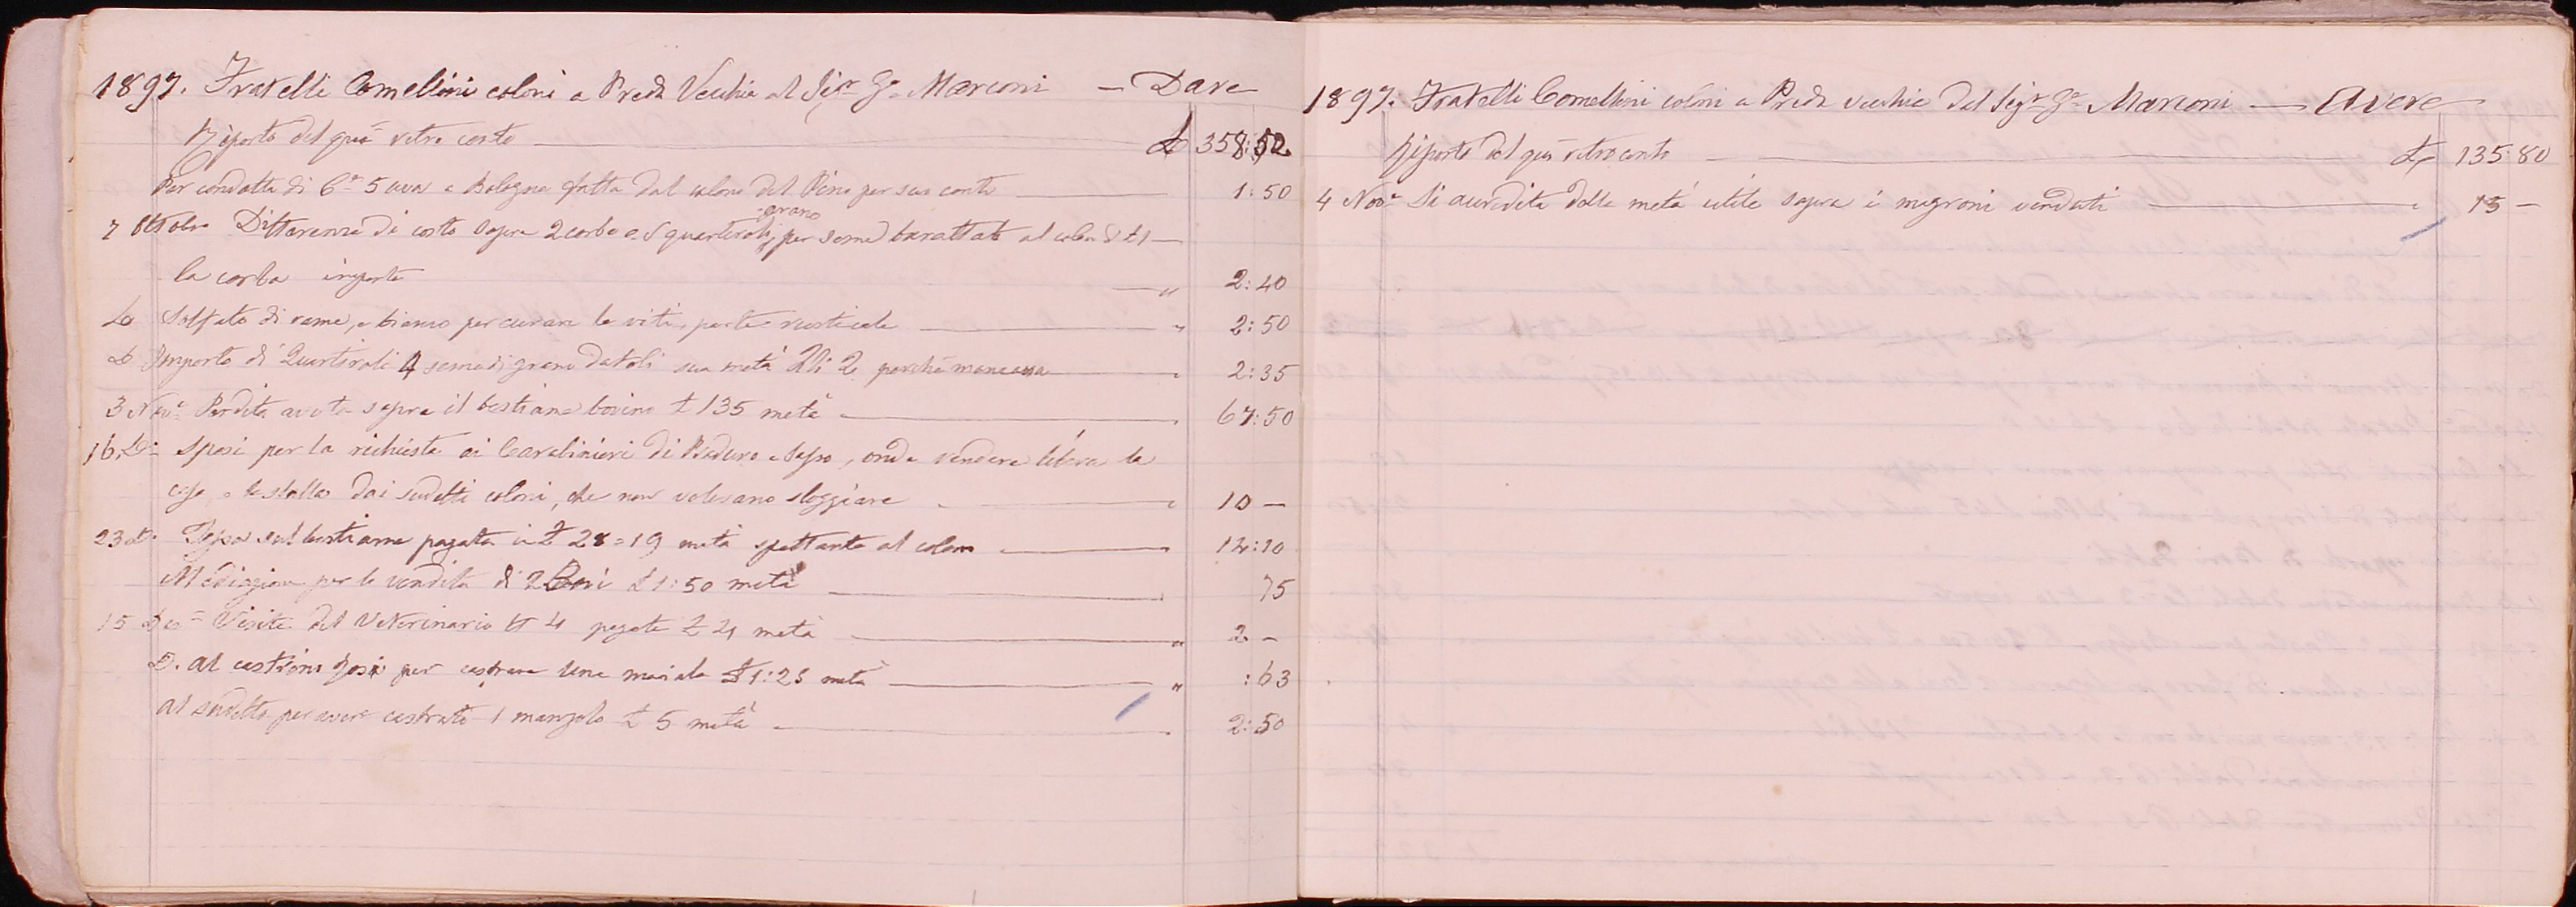 1897. Fratelli Comellini coloni a Preda Vecchia al Sigr Ge Marconi — Dare
Riporto del quì retro conto £ 358:52
Per condotta di Ce 5 uva a Bologna fatta dal colono del Pino per suo conto 1:50
grano
7 Ottobre Differenza di costo sopra 2 corbe e 5 quartiroli per seme barattato al colono £1
la corba importa " 2:40
Solfato di rame, e bianco per curare le viti, parte rusticale " 2:50
Importo di Quartiroli 4 seme di grano datoli sua metà Qli 2 perchè mancava 2:35
3 Nove Perdita avuta sopra il bestiame bovino £ 135 metà 67:50
16 Do Spesi per la richiesta ai Carabinieri di Sasso, onde rendere libera la
casa, e la stalla dai sudetti coloni, che non volevano sloggiare 10 —
23 Do Tassa sul bestiame pagata in £ 28=19 metà spettante al colono 14:10
Mediazione per la vendita di 2 Bovi £ 1:50 metà 75
15 Visite del Veterinario No 4 pagate £ 4 metà " 2 —
D. al castrino per castrare una maiala £ 1:25 metà " :63
Al sudetto per avere castrato 1 manzolo £ 5 metà 2:50
1897. Fratelli Comellini coloni a Preda vecchia del Sigr Ge Marconi — Avere
Riporto del quì retro conto £ 135:80
4 Nove Si accredita della metà utile sopra i magroni venduti 15 —